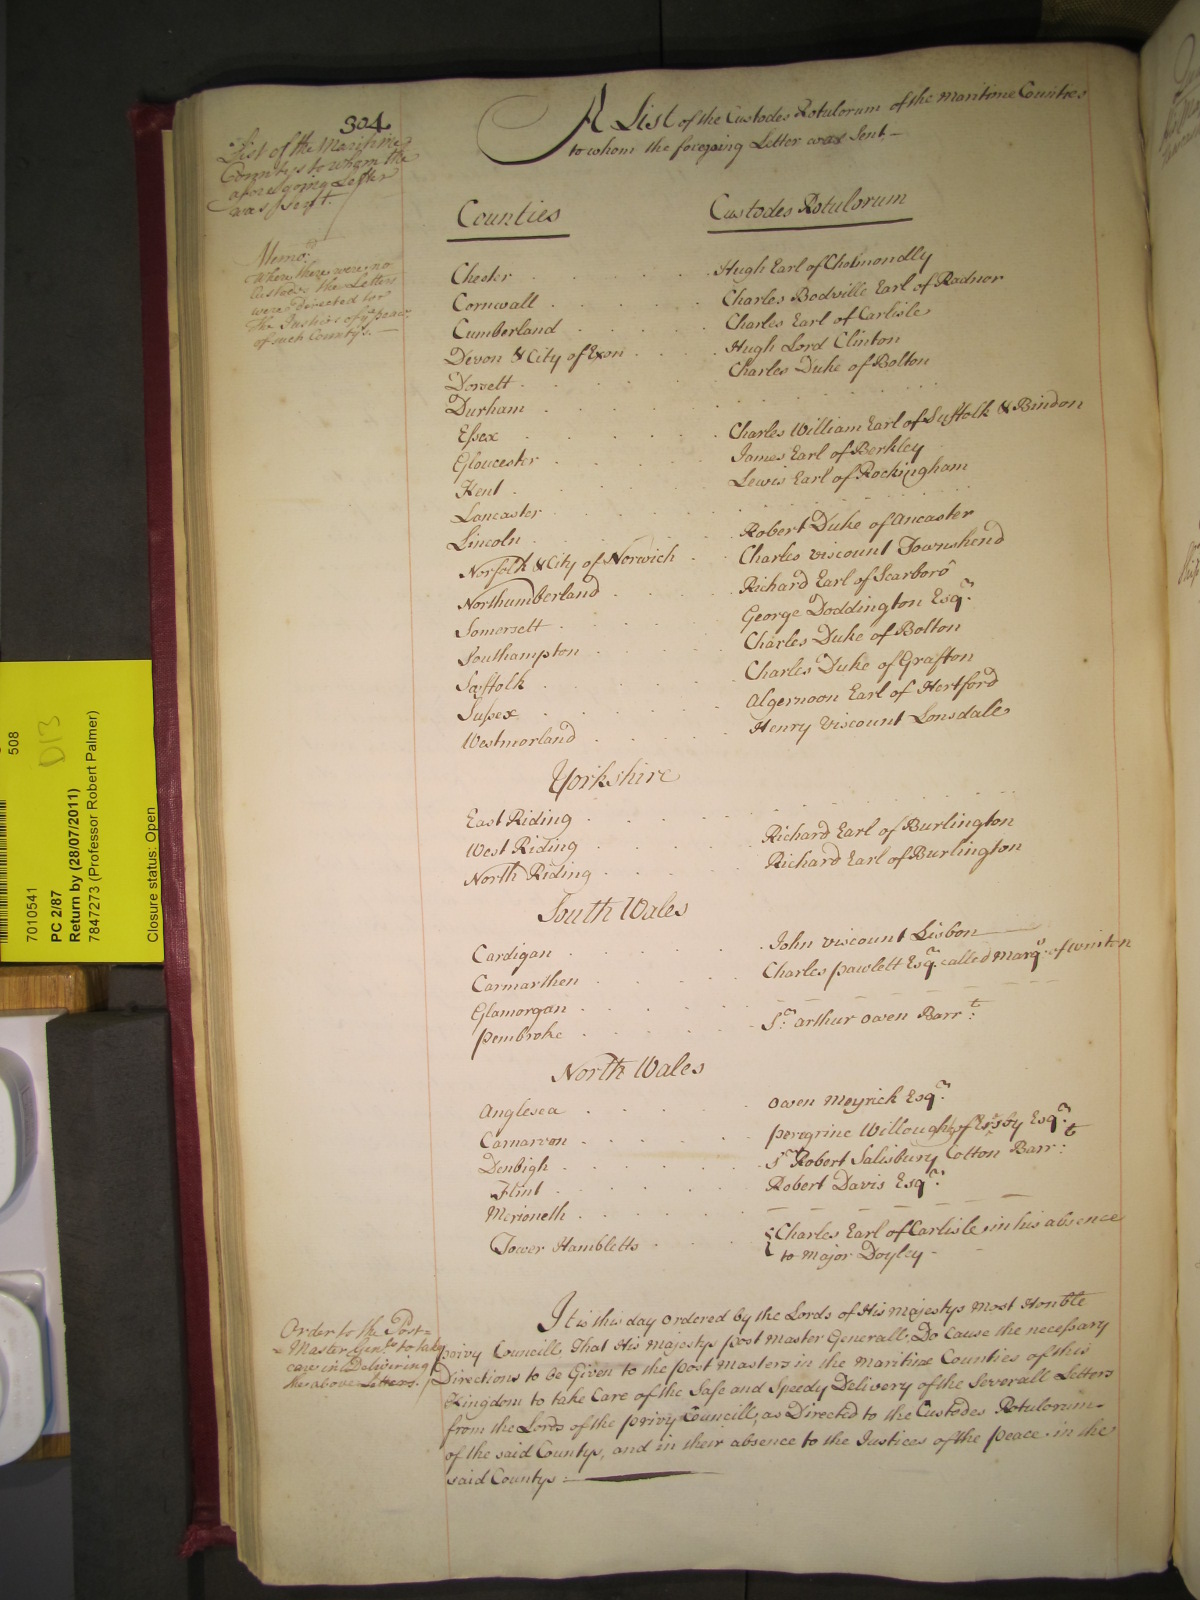 304
List of the Maritime
Countys to whom the
afore going Letter
was sent.
Memo:d
Where there were no
Custodes the Letters
were Directed to
the Justices of ye peace
of such Countys.
A List of the Custodes Rotulorum of the maritime Countres
to whom the foregoing Letter was Sent
Counties
Custodes Rotulorum
Chester . . . . Hugh Earl of Cholmondly
Cornwall . . . . Charles Bodville Earl of Radnor
Cumberland . . . . Charles Earl of Carlisle
Devon & City of Exon . . . . Hugh Lord Clinton
Dorsett . . . . Charles Duke of Bolton
Durham . . . .
Essex . . . . Charles William Earl of Suffolk & Bindon
Gloucester . . . . James Earl of Berkley
Kent . . . . Lewis Earl of Rockingham
Lancaster . . . .
Lincoln . . . . Robert Duke of Ancaster
Norfolk & City of Norwich . . Charles Viscount Townshend
Northumberland . . . . Richard Earl of Scarboro
Somersett . . . . George Doddington Esqr.
Southampton . . . . Charles Duke of Bolton
Suffolk . . . . Charles Duke of Grafton
Sussex . . . . Algernoon Earl of Hertford
Westmorland . . . . Henry Viscount Lonsdale
Yorkshire
East Riding . . . .
West Riding . . . . Richard Earl of Burlington
North Riding . . . . Richard Earl of Burlington
South Wales
Cardigan . . . . John Viscount Lisbon
Carmarthen . . . . Charles pawlett Esqr. called Marqs. of Winton
Glamorgan . . . .
pembroke . . . . Sr. Arthur Owen Barrt:
North Wales
Anglesea . . . . Owen Meyrick Esqr.
Carnarvon . . . . peregrine Willoughby of Ersby Esqr.
Denbigh . . . . Sr. Robert Salisbury Cotton Barrt:
Flint . . . . Robert Davis Esqr.
Merioneth . . . .
Tower Hambletts . . . . { Charles Earl of Carlisle in his absence
to Major Doyley
Order to the Post=
Master Genll. to take
care in Delivering
the above Letters.
It is this day ordered by the Lords of His Majestys Most Honble
privy Councill That His Majestys post Master Generall Do cause the necessary
Directions to be Given to the post Masters in the Maritime Counties of this
Kingdom to take Care of the Safe and Speedy Delivery of the Severall Letters
from the Lords of the privy Councill, as Directed to the Custodes Rotulorum
of the said Countys, and in their absence to the Justices of the peace in the
said Countys
508
D13
7010541
PC 2/87
Return by (28/07/2011)
7847273 (Professor Robert Palmer)
Closure status: Open